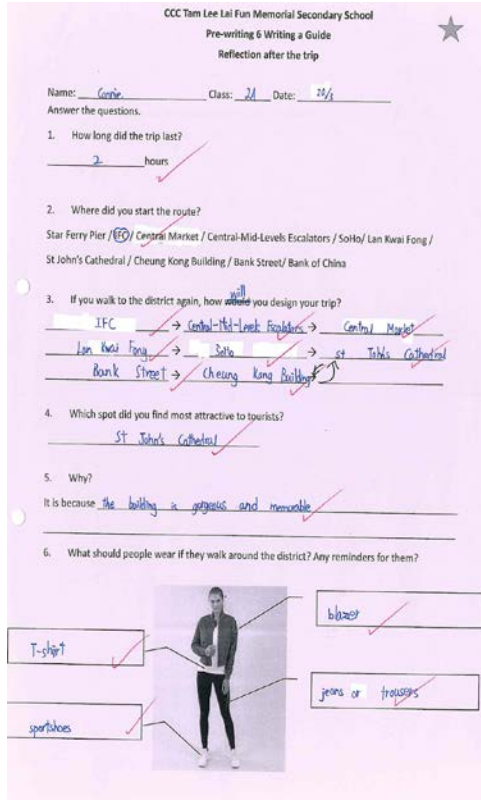 CCC Tam Lee Lai Fun Memorial Secondary School
Pre-writing 6 Writing a Guide
Reflection after the trip
Name: Connie Class: 2A Date: 20/5
Answer the questions.
1. How long did the trip last?
2 hours
2. Where did you start the route?
Star Ferry Pier / IFC / Central Market / Central-Mid-Levels Escalators / SoHo/ Lan Kwai Fong /
St John's Cathedral / Cheung Kong Building / Bank Street/ Bank of China
will
3. If you walk to the district again, how would you design your trip?
IFC → Central-Mid-Levels Escalators → Central Market
Lan Kwai Fong → SoHo → St John's Cathedral
Bank Street → Cheung Kong Building
4. Which spot did you find most attractive to tourists?
St John's Cathedral
5. Why?
It is because the building is gorgeous and memorable
6. What should people wear if they walk around the district? Any reminders for them?
blazer
T-shirt
jeans or trousers
sportshoes